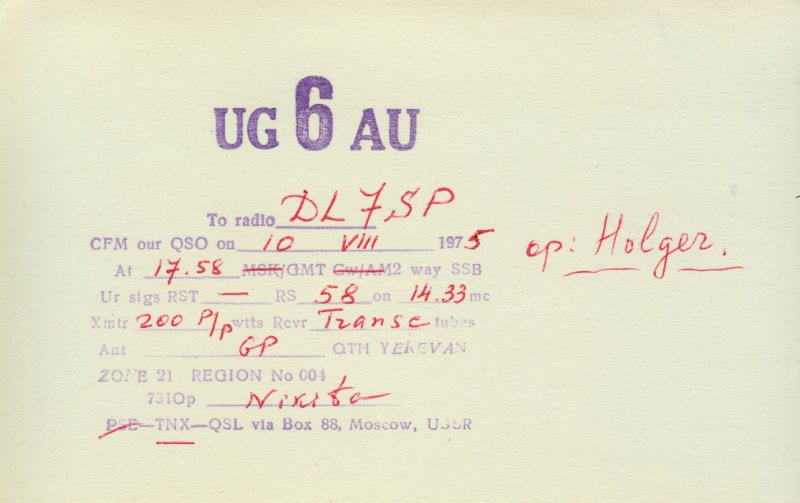 UG 6 AU
To radio DL7SP
CFM our QSO on 10 VIII 1975
op: Holger.
At 17.58 MSK/GMT Cw/AM2 way SSB
Ur sigs RST — RS 58 on 14.33 mc
Xmtr 200 P/p wtts Rcvr Transc tubes
Ant GP QTH YEREVAN
ZONE 21 REGION No 004
731Op Nikita
PSE—TNX—QSL via Box 88, Moscow, USSR